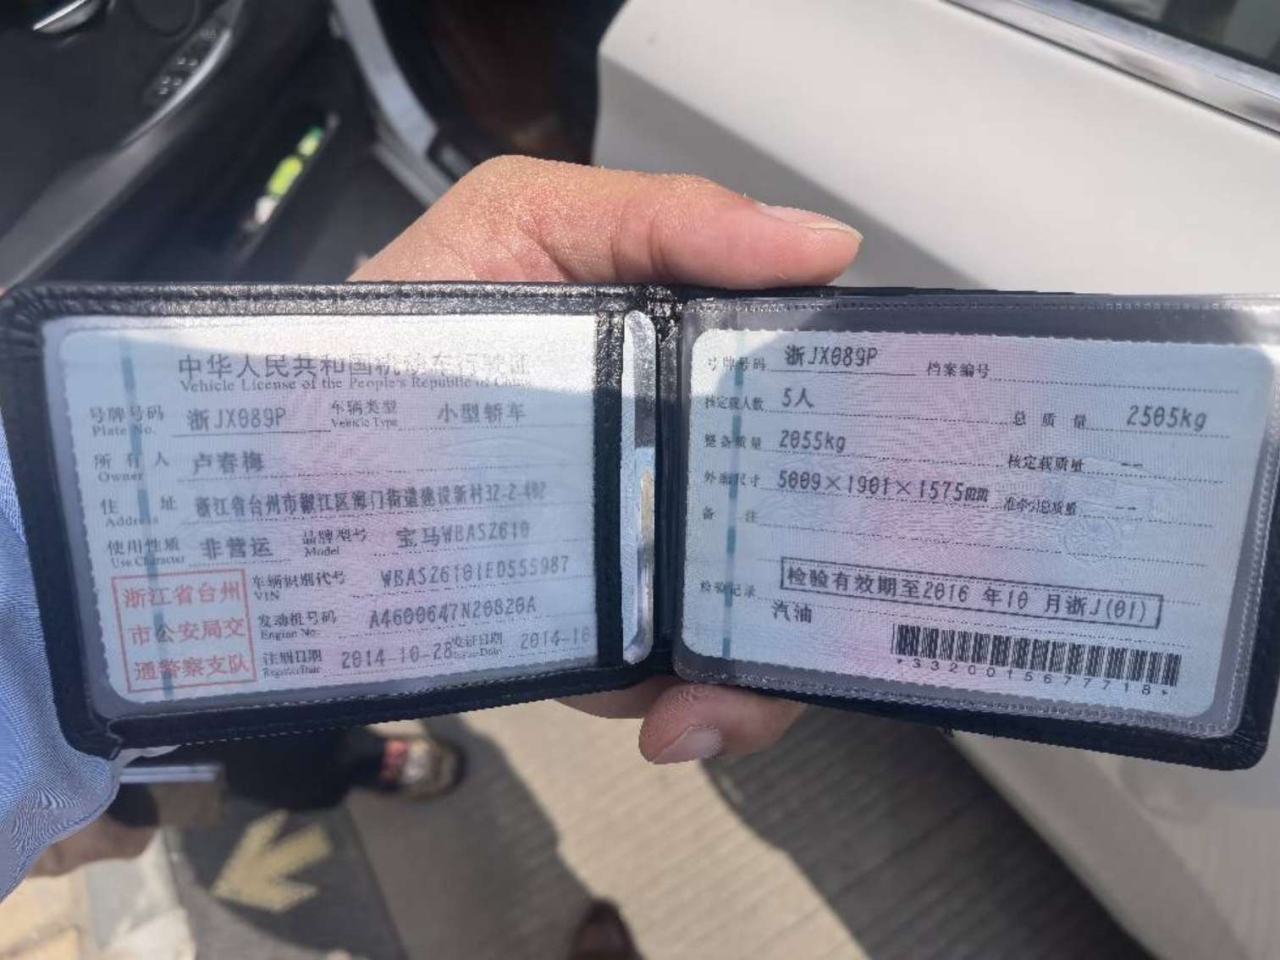 中华人民共和国机动车行驶证
Vehicle License of the People's Republic of China
号牌号码 浙JX089P 车辆类型 小型轿车
Plate No. Vehicle Type
所有人 卢春梅
Owner
住址 浙江省台州市椒江区海门街道建设新村32-2-402
Address
使用性质 非营运 品牌型号 宝马WBASZ610
Use Character Model
浙江省台州
市公安局交
通警察支队
车辆识别代号 WBASZ6101ED555987
VIN
发动机号码 A4600647N20B20A
Engine No.
注册日期 2014-10-28 发证日期 2014-10
Register Date Issue Date
号牌号码 浙JX089P 档案编号
核定载人数 5人 总质量 2505kg
整备质量 2055kg 核定载质量 --
外廓尺寸 5009×1901×1575mm 准牵引总质量 --
备注
检验记录 检验有效期至2016年10月浙J(01)
汽油
*3320015677718*